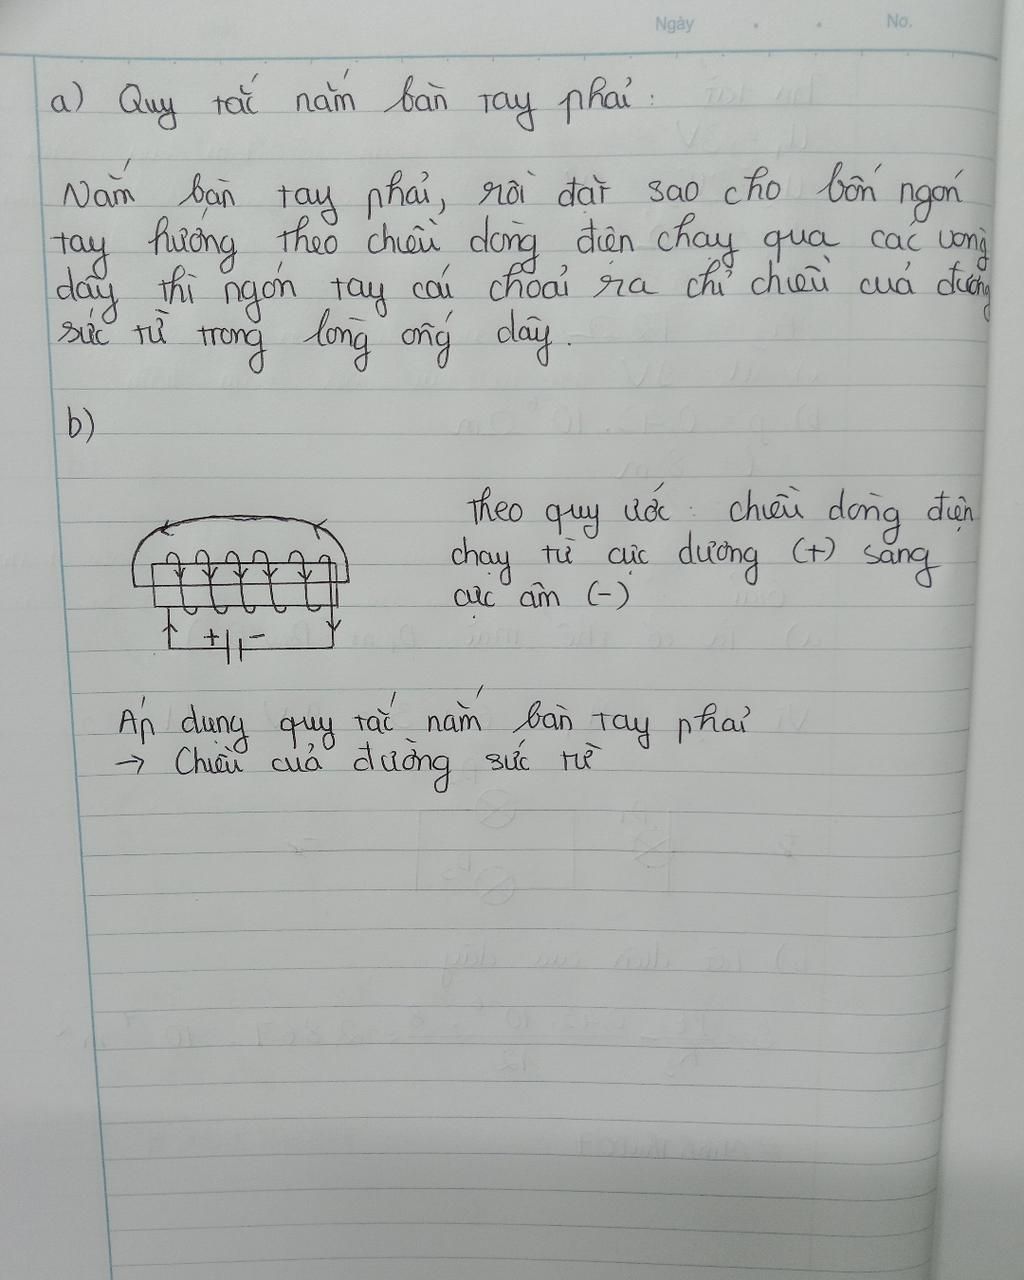 Ngày . . No.
a) Quy tắc nắm bàn tay phải :
Nắm bàn tay phải, rồi đặt sao cho bốn ngón
tay hướng theo chiều dòng điện chạy qua các vòng
dây thì ngón tay cái choãi ra chỉ chiều của đường
sức từ trong lòng ống dây.
b)
Theo quy ước : chiều dòng điện
chạy từ cực dương (+) sang
cực âm (-)
+ -
Áp dụng quy tắc nắm bàn tay phải
→ Chiều của đường sức từ